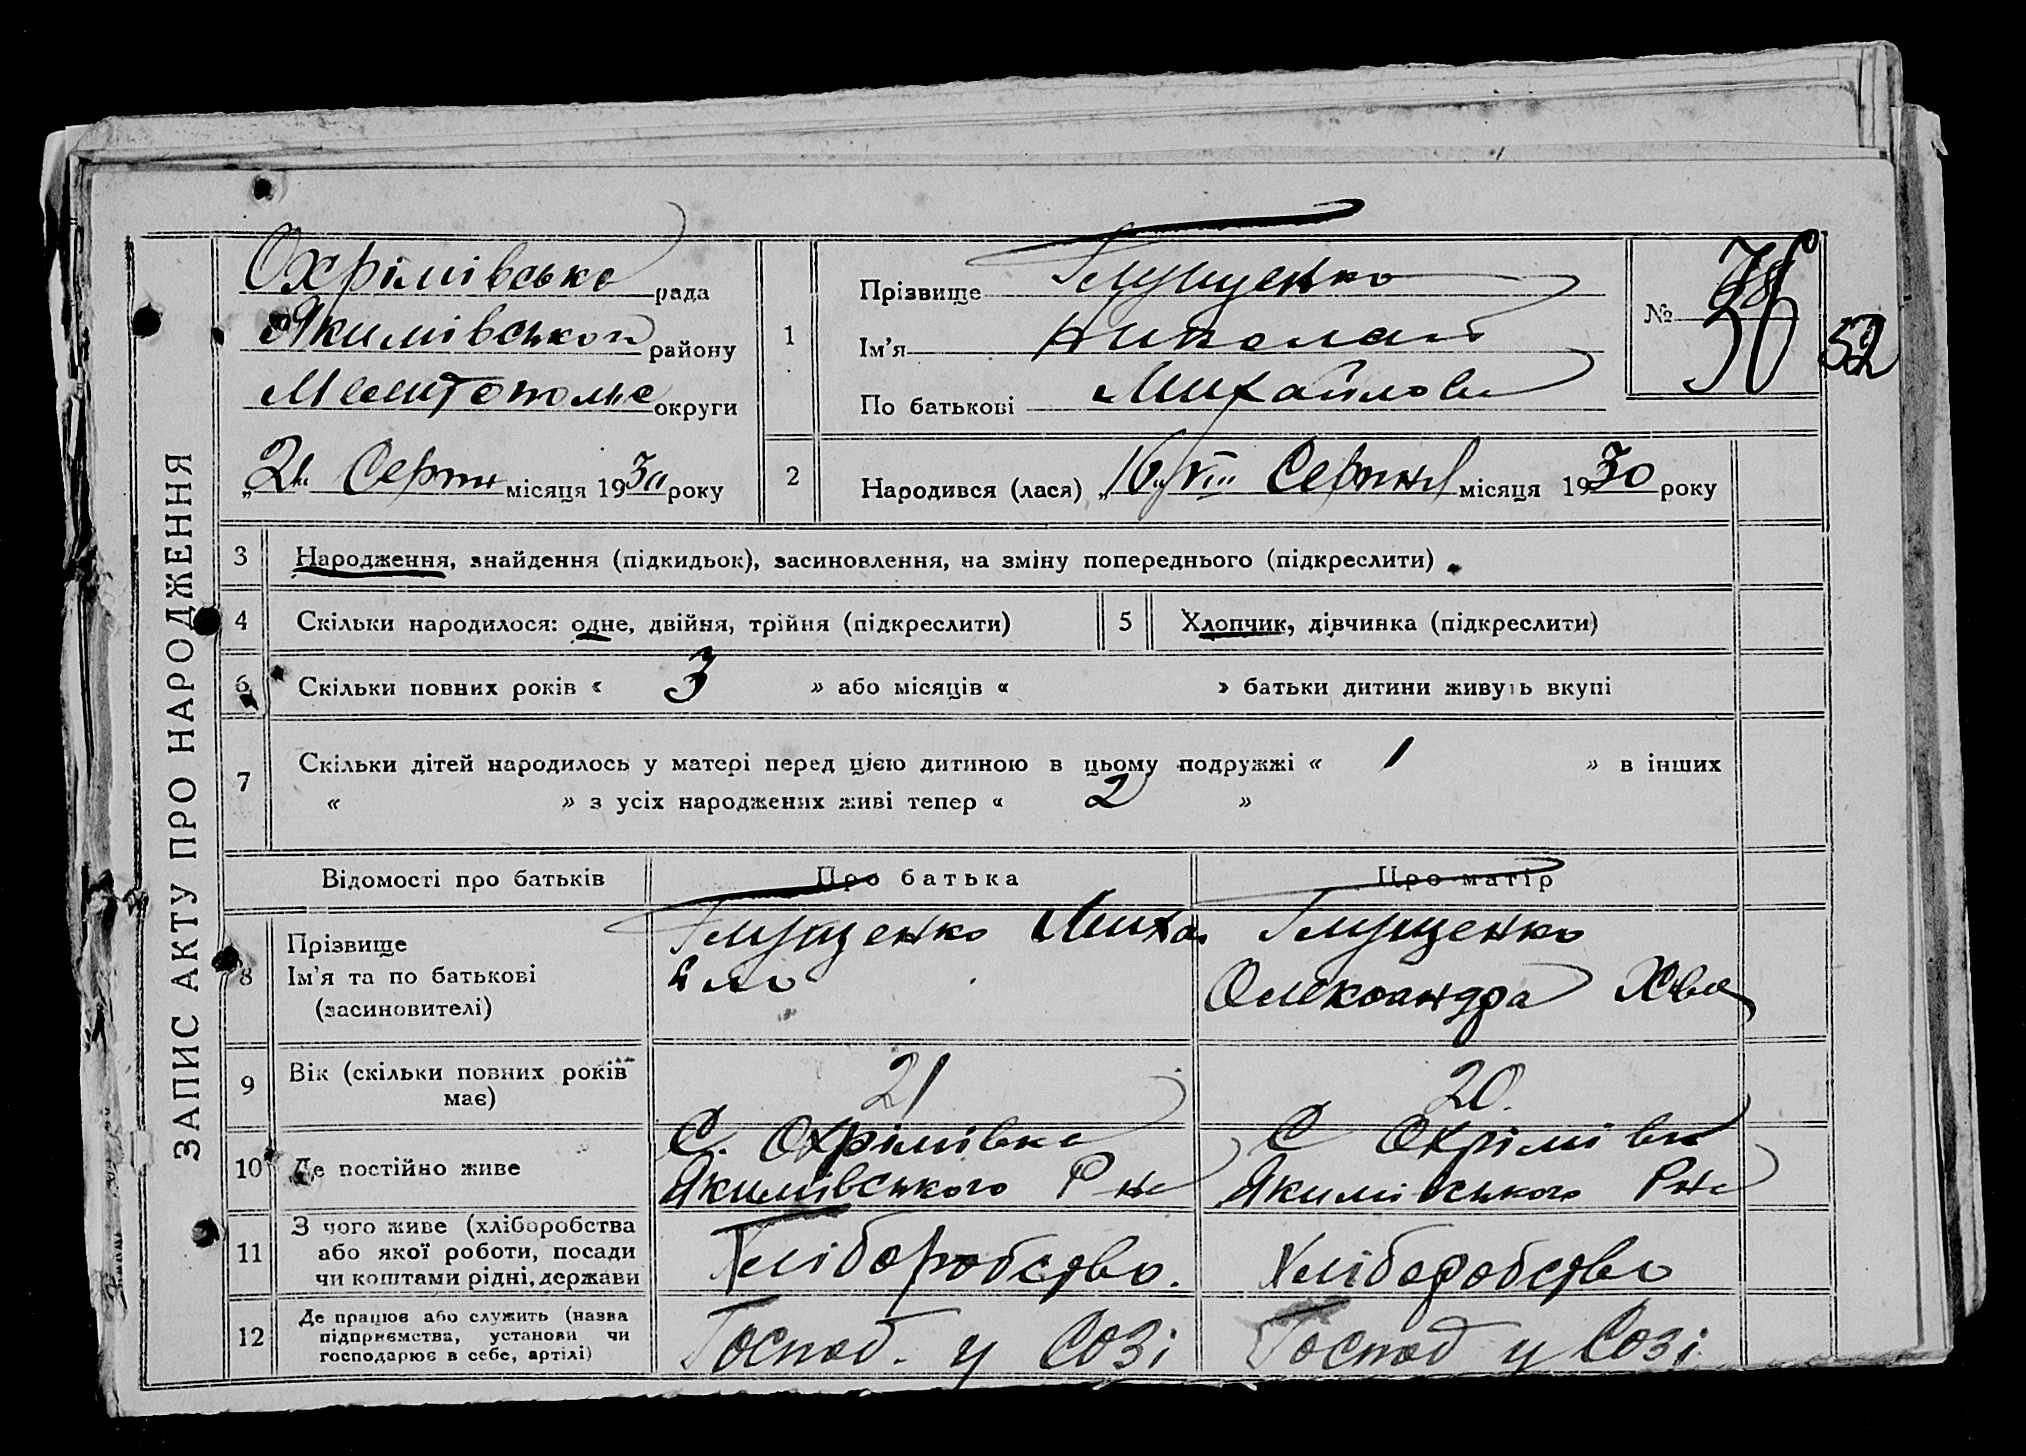 ЗАПИС АКТУ ПРО НАРОДЖЕННЯ
Охрімівська рада
Якимівського району
Мелітопольс округи
„21“ Серпн місяця 1930 року
1
Прізвище Глущенко
Ім’я Николай
По батькові Михайлов
№ 38
52
2
Народився (лася) „16“ VIII Серпня місяця 1930 року
3 Народження, знайдення (підкидьок), засиновлення, на зміну попереднього (підкреслити)
4 Скільки народилося: одне, двійня, трійня (підкреслити)
5 Хлопчик, дівчинка (підкреслити)
6 Скільки повних років « 3 » або місяців « » батьки дитини живуть вкупі
7 Скільки дітей народилось у матері перед цією дитиною в цьому подружжі « 1 » в інших
« » з усіх народжених живі тепер « 2 »
Відомості про батьків
Про батька
Про матір
8 Прізвище
Ім’я та по батькові
(засиновителі)
Глущенко Миха
йло
Глущенко
Олександра Хве
9 Вік (скільки повних років
має)
21
20.
10 Де постійно живе
С. Охрімівка
Якимівського Р на
С Охрімівка
Якимівського Рна
11 З чого живе (хліборобства
або якої роботи, посади
чи коштами рідні, держави
Хліборобство.
Хліборобство
12 Де працює або служить (назва
підприємства, установи чи
господарює в себе, артілі)
Господ. у Созі
Господ у Созі